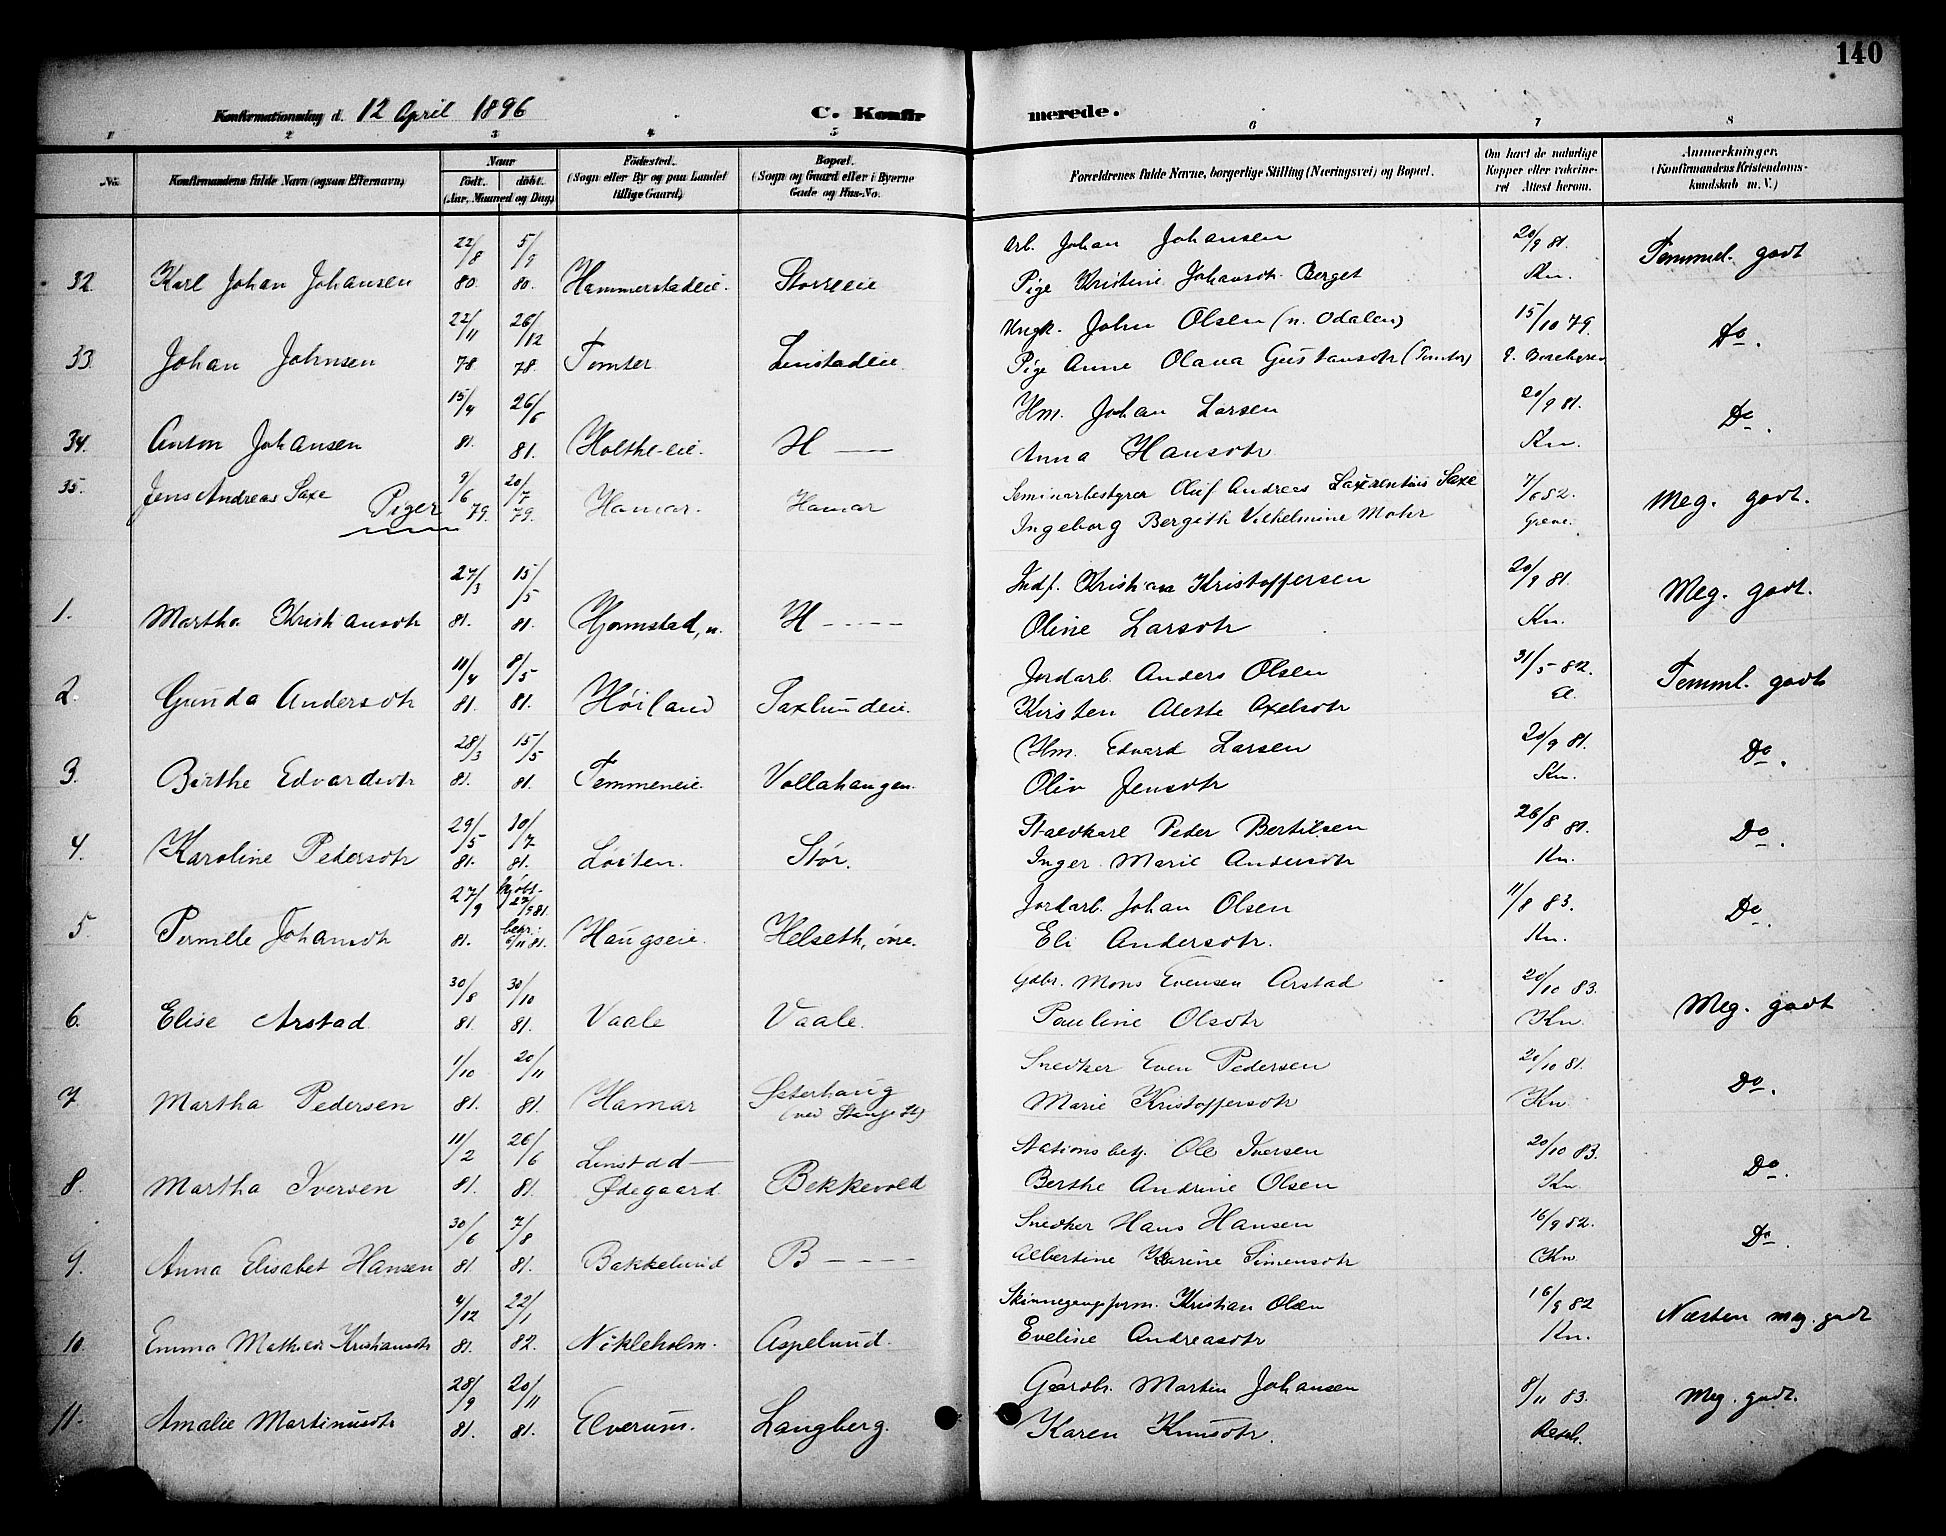 140
Konfirmationsdag d. 12 April 1896 C. Konfirmerede.
1 2 3 4 5 6 7 8
No. Konfirmandens fulde Navn (ogsaa Efternavn)
Naar
født. døbt.
(Aar, Maaned og Dag)
Fødested.
(Sogn eller By og paa Landet
tillige Gaard)
Bopæl.
(Sogn og Gaard eller i Byerne
Gade og Hus-No.
Forældrenes fulde Navne, borgerlige Stilling (Næringsvei) og Bopæl.
Om havt de naturlige
Kopper eller vakcineret
Attest herom.
Anmærkninger.
(Konfirmandens Kristendomskundskab
m. V.)
22/8 5/9 Arb. Johan Johansen 20/9 81.
32. Karl Johan Johansen 80. 80. Hammerstadeie. Storreie Pige Kristine Johansdtr. Berget Kn. Temmel. godt
22/11 26/12 Ungk. John Olsen (n. Odalen) 15/10 79.
33. Johan Johnsen 78 78. Tomter Linstadeie. Pige Anne Olava Gustavsdtr (Tomter) Do.
15/4 26/6 Hm. Johan Larsen 20/9 81.
34. Anton Johansen 81. 81. Holthe-eie. H — Anna Hansdtr Kn. Do.
35. Jens Andreas Saxe 9/6 79. 20/7 79. Hamar. Hamar Seminarbestyrer Oluf Andreas Laurentius Saxe 7/6 82. Meg. godt.
Piger Ingeborg Bergith Vilhelmine Mohr Greve.
27/3 15/5 Indf. Kristian Kristoffersen 20/9 81.
1. Martha Kristiansdtr 81. 81. Hjormstad, n. H ---- Oline Larsdtr Kn. Meg. godt.
11/4 8/5 Jordarb. Anders Olsen 31/5 82.
2. Gunda Andersdtr 81. 81. Høiland Saxlundeie. Kirsten Alette Axelsdtr Temml. godt
28/3 15/5 Hm. Edvard Larsen 20/9 81.
3. Berthe Edvardsdtr 81. 81. Temmeneie. Vollahaugen. Oliv Jensdtr Kn. Do.
29/5 10/7 Staldkarl Peder Bertilsen 26/8 81.
4. Karoline Pedersdtr 81. 81. Løiten. Stór. Inger Marie Andersdtr Kn. Do.
27/9 hjdbt. 27/9 81. Jordarb. Johan Olsen 11/8 83.
5. Pernille Johansdtr 81. bekr. 6/11 81. Haugseie. Helseth, øvre. Eli Andersdtr. Kn. Do.
30/8 30/10 Gdbr. Mons Evensen Arstad 20/10 83.
6. Elise Arstad 81. 81. Vaale Vaale. Pauline Olsdtr Kn. Meg. godt
1/10 20/11 Snedker Even Pedersen 20/10 81
7. Martha Pedersen 81. 81. Hamar Sæterhaug (ved Stange St) Marie Kristoffersdtr Kn. Do.
11/2 26/6 Linstad— Stationsbetj. Ole Iversen 20/10 83.
8. Martha Iversen 81. 81. Ødegaard Bekkevold Berthe Andrine Olsen Kn Do.
30/6 7/8 Snedker Hans Hansen 16/9 82.
9. Anna Elisabet Hansen 81. 81. Bakkelund B --- Albertine Karine Simensdtr Kn Do.
4/12 22/1 Skinnegangsform. Kristian Olsen 16/9 82
10. Emma Mathea Kristiansdtr 81. 82. Nikleholm. Aspelund. Eveline Andreasdtr Kn. Næsten meg. godt
28/9 20/11 Gaardbr. Martin Johansen 8/11 83.
11. Amalie Martinusdtr 81. 81. Elverum. Langberg. Karen Knusdtr. Meg. godt.